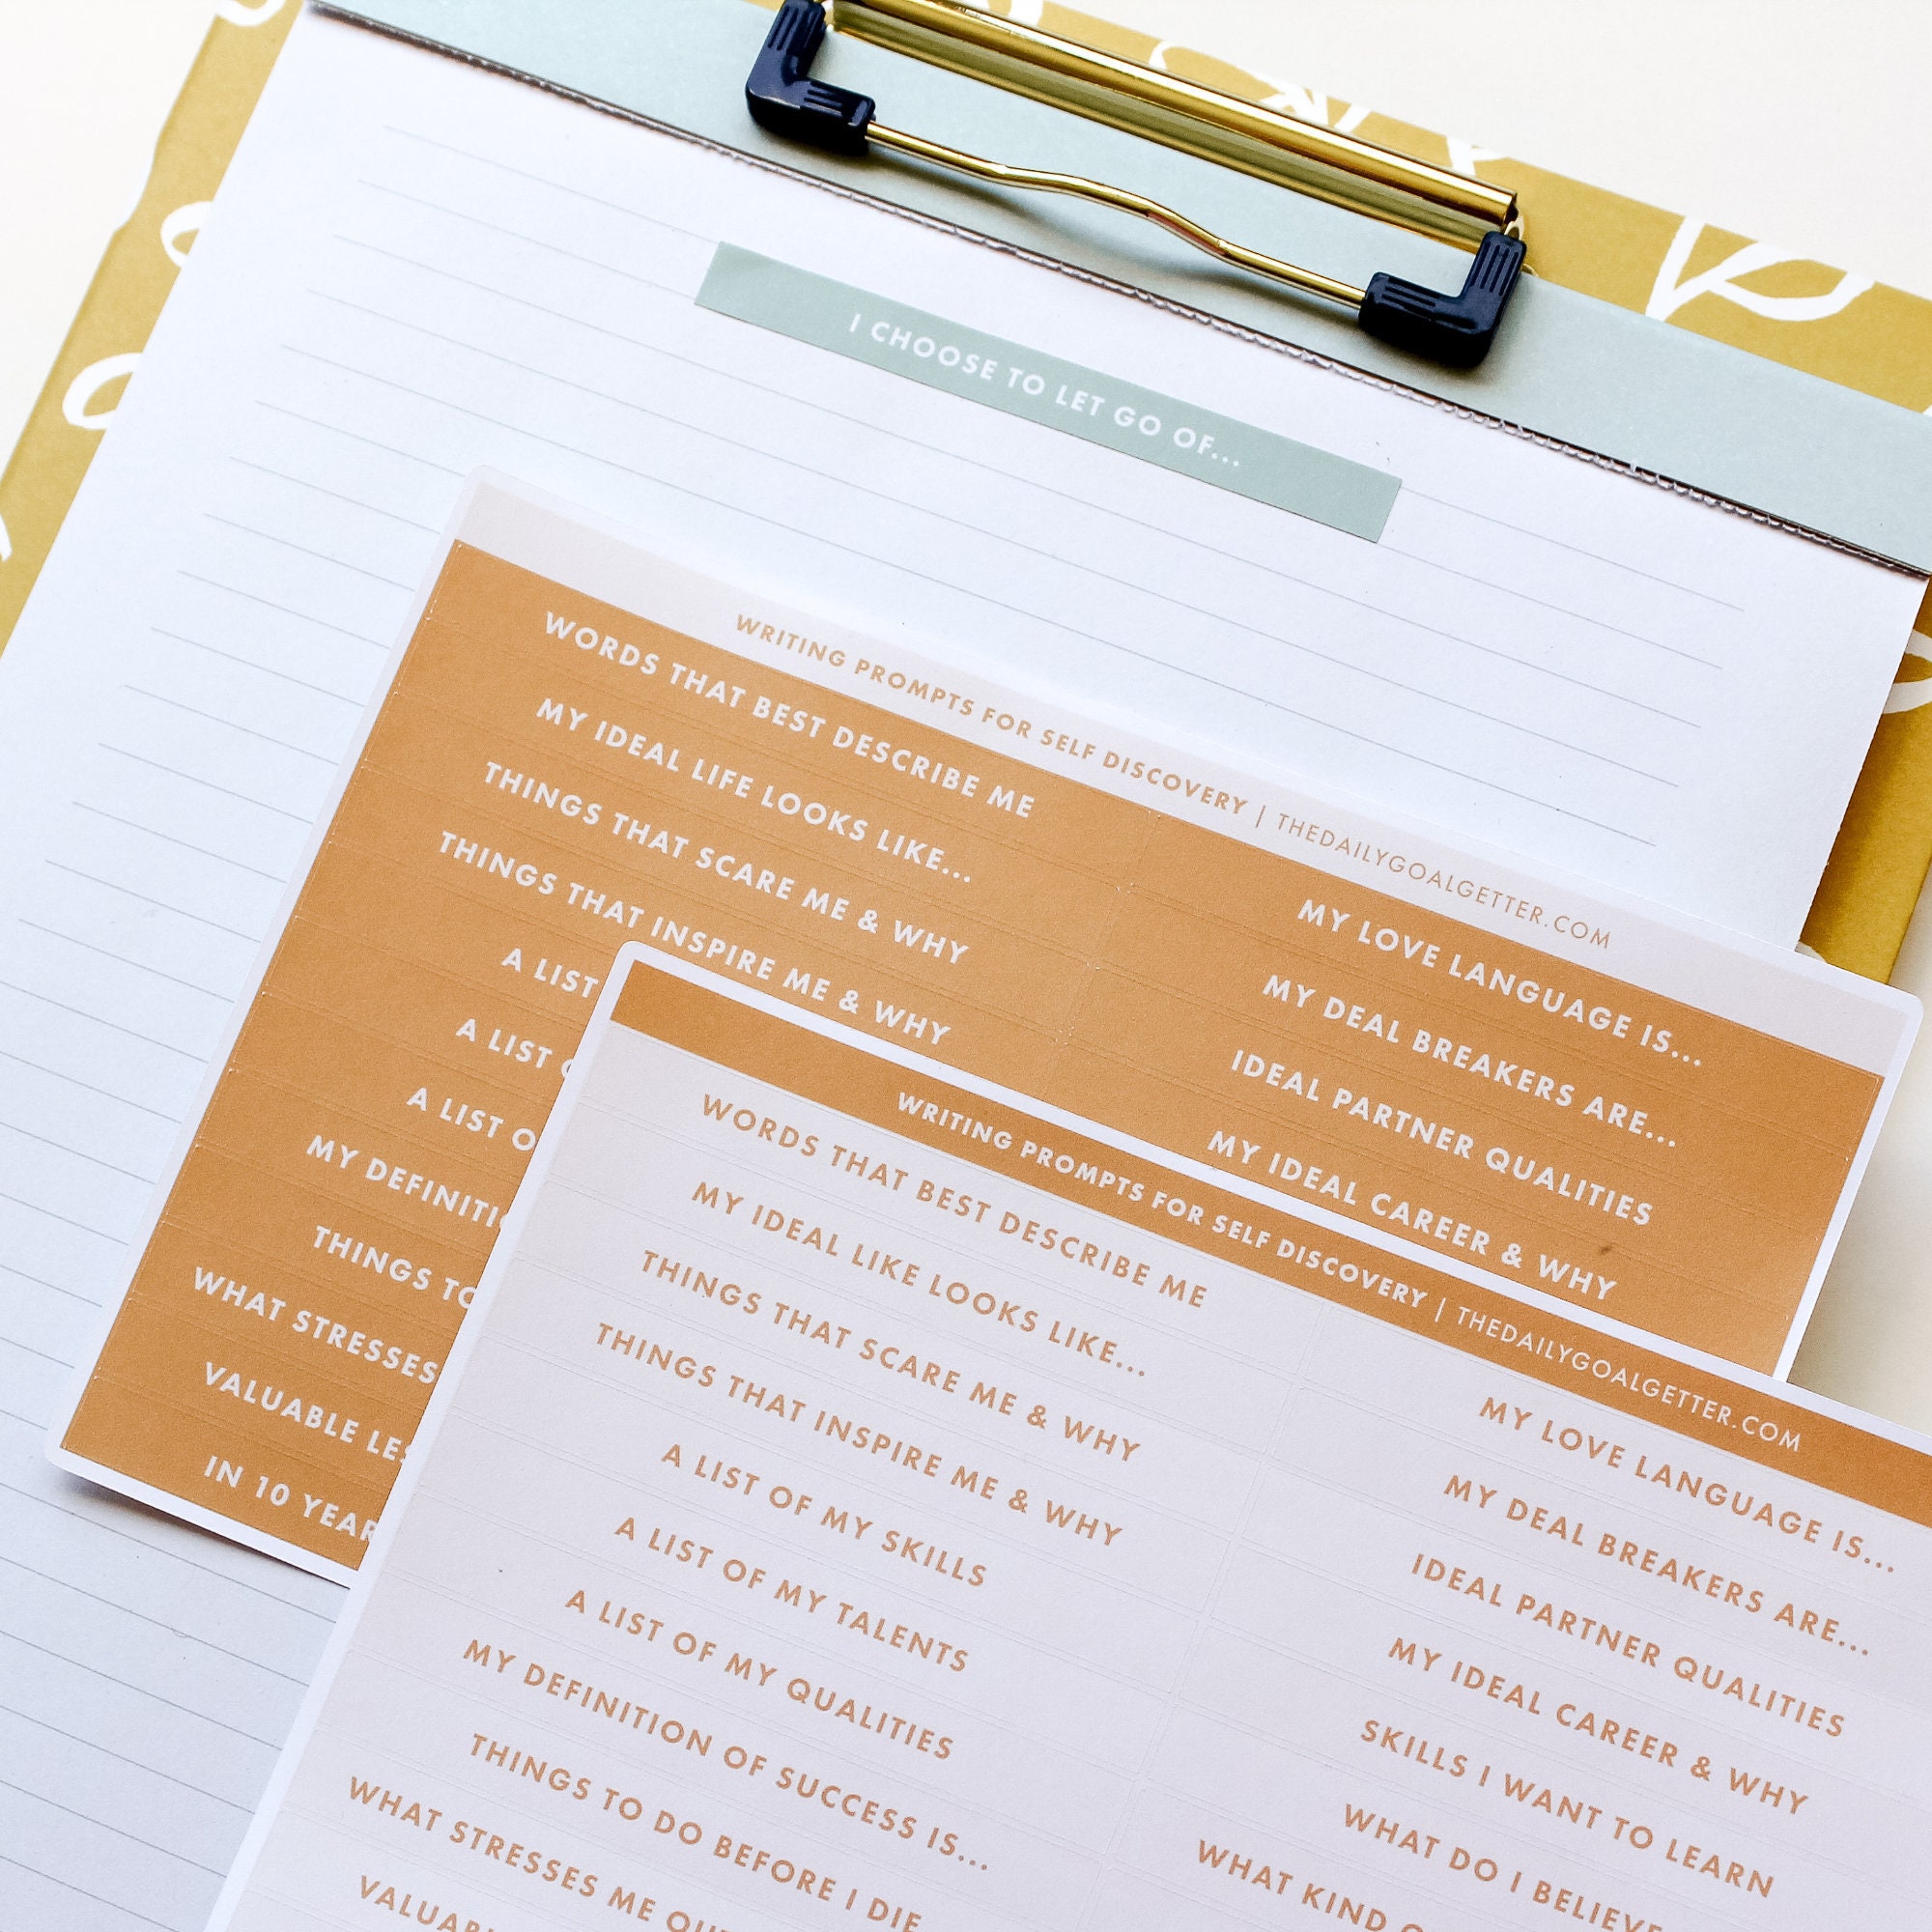 I CHOOSE TO LET GO OF...
WRITING PROMPTS FOR SELF DISCOVERY | THEDAILYGOALGETTER.COM
WORDS THAT BEST DESCRIBE ME
MY IDEAL LIFE LOOKS LIKE...
THINGS THAT SCARE ME & WHY
THINGS THAT INSPIRE ME & WHY
A LIST
A LIST
A LIST
MY
THINGS
WHAT STRESSES
VALUABLE
IN 10
MY LOVE LANGUAGE IS...
MY DEAL BREAKERS ARE...
IDEAL PARTNER QUALITIES
MY IDEAL CAREER & WHY
WRITING PROMPTS FOR SELF DISCOVERY | THEDAILYGOALGETTER.COM
WORDS THAT BEST DESCRIBE ME
MY IDEAL LIKE LOOKS LIKE...
THINGS THAT SCARE ME & WHY
THINGS THAT INSPIRE ME & WHY
A LIST OF MY SKILLS
A LIST OF MY TALENTS
A LIST OF MY QUALITIES
MY DEFINITION OF SUCCESS IS...
THINGS TO DO BEFORE I DIE
WHAT STRESSES ME
MY LOVE LANGUAGE IS...
MY DEAL BREAKERS ARE...
IDEAL PARTNER QUALITIES
MY IDEAL CAREER & WHY
SKILLS I WANT TO LEARN
WHAT DO I
WHAT KIND